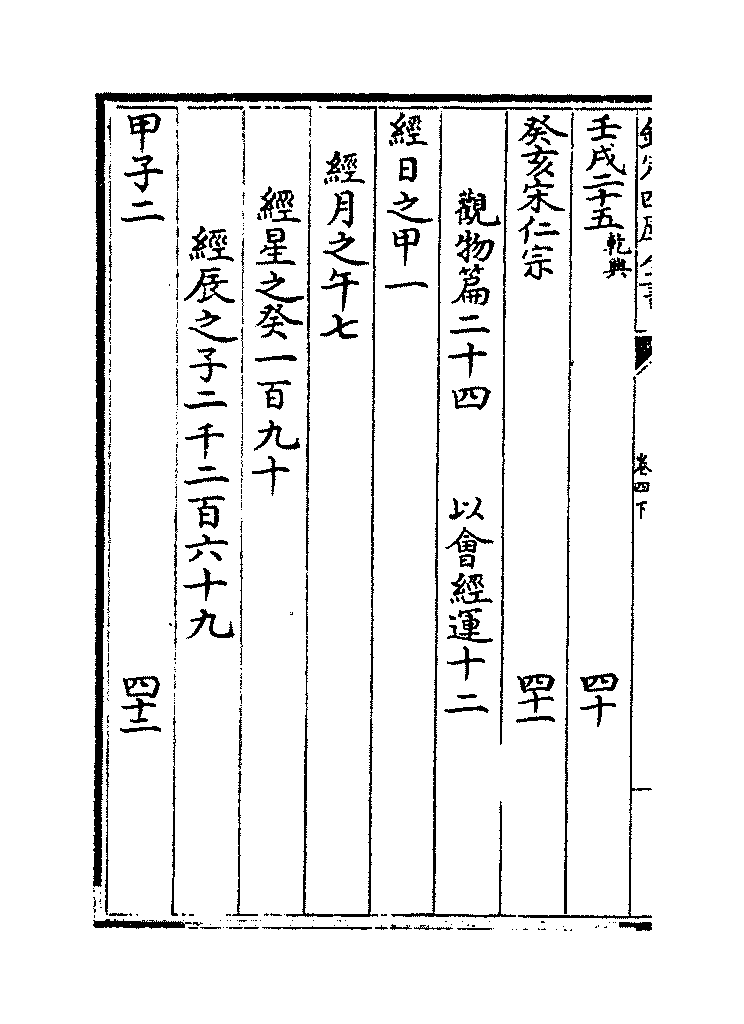 欽定四庫全書 卷四下
壬戌二十五乾興 四十
癸亥宋仁宗 四十一
觀物篇二十四 以會經運十二
經日之甲一
經月之午七
經星之癸一百九十
經辰之子二千二百六十九
甲子二 四十二